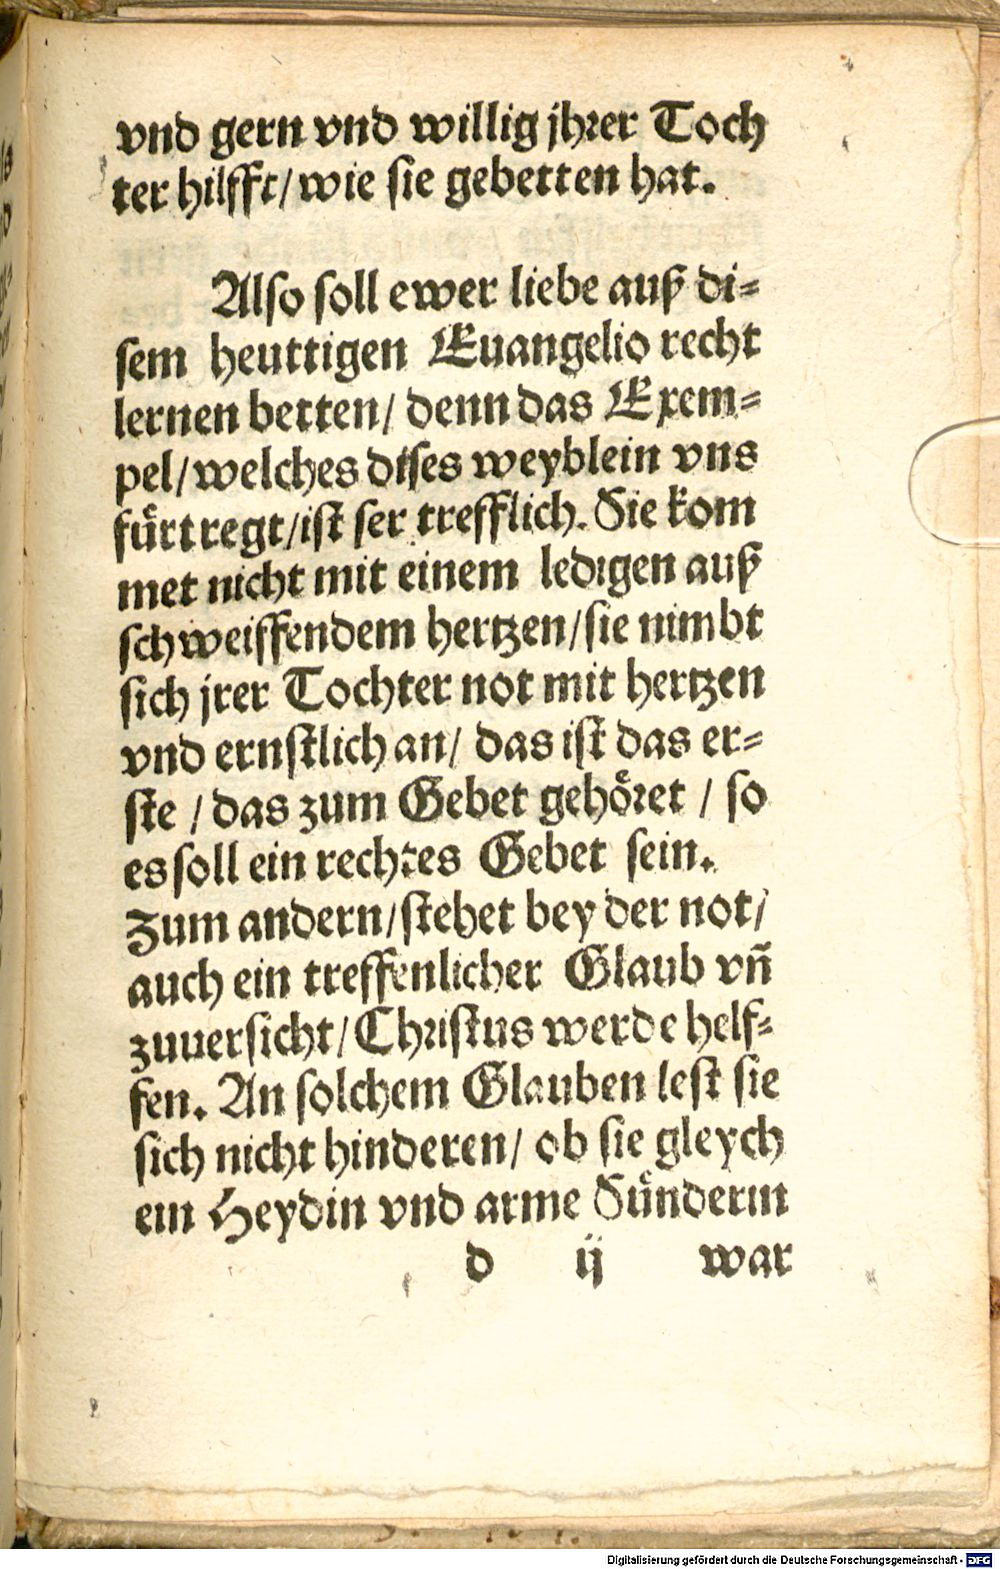 vnd gern vnd willig jhrer Toch
ter hilfft/wie sie gebetten hat.
Also soll ewer liebe auß di⸗
sem heuttigen Euangelio recht
lernen betten/ denn das Exem⸗
pel/welches dises weyblein vns
fuͤrtregt/ist ser trefflich. Sie kom
met nicht mit einem ledigen auß
schweiffendem hertzen/sie nimbt
sich jrer Tochter not mit hertzen
vnd ernstlich an/ das ist das er⸗
ste / das zum Gebet gehoͤret / so
es soll ein rechtes Gebet sein.
Zum andern/stehet bey der not/
auch ein treffenlicher Glaub vñ
zuuersicht/Christus werde helf⸗
fen. An solchem Glauben lest sie
sich nicht hinderen/ ob sie gleych
ein Heydin vnd arme Suͤnderin
d ij war
Digitalisierung gefördert durch die Deutsche Forschungsgemeinschaft - DFG